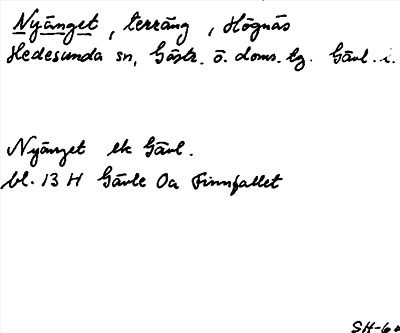 Nyänget, terräng, Högnäs
Hedesunda sn, Gästr. ö. doms. tg. Gävl. l.
Nyänget ek Gävl.
bl. 13 H Gävle Oa Finnfallet
SH-60